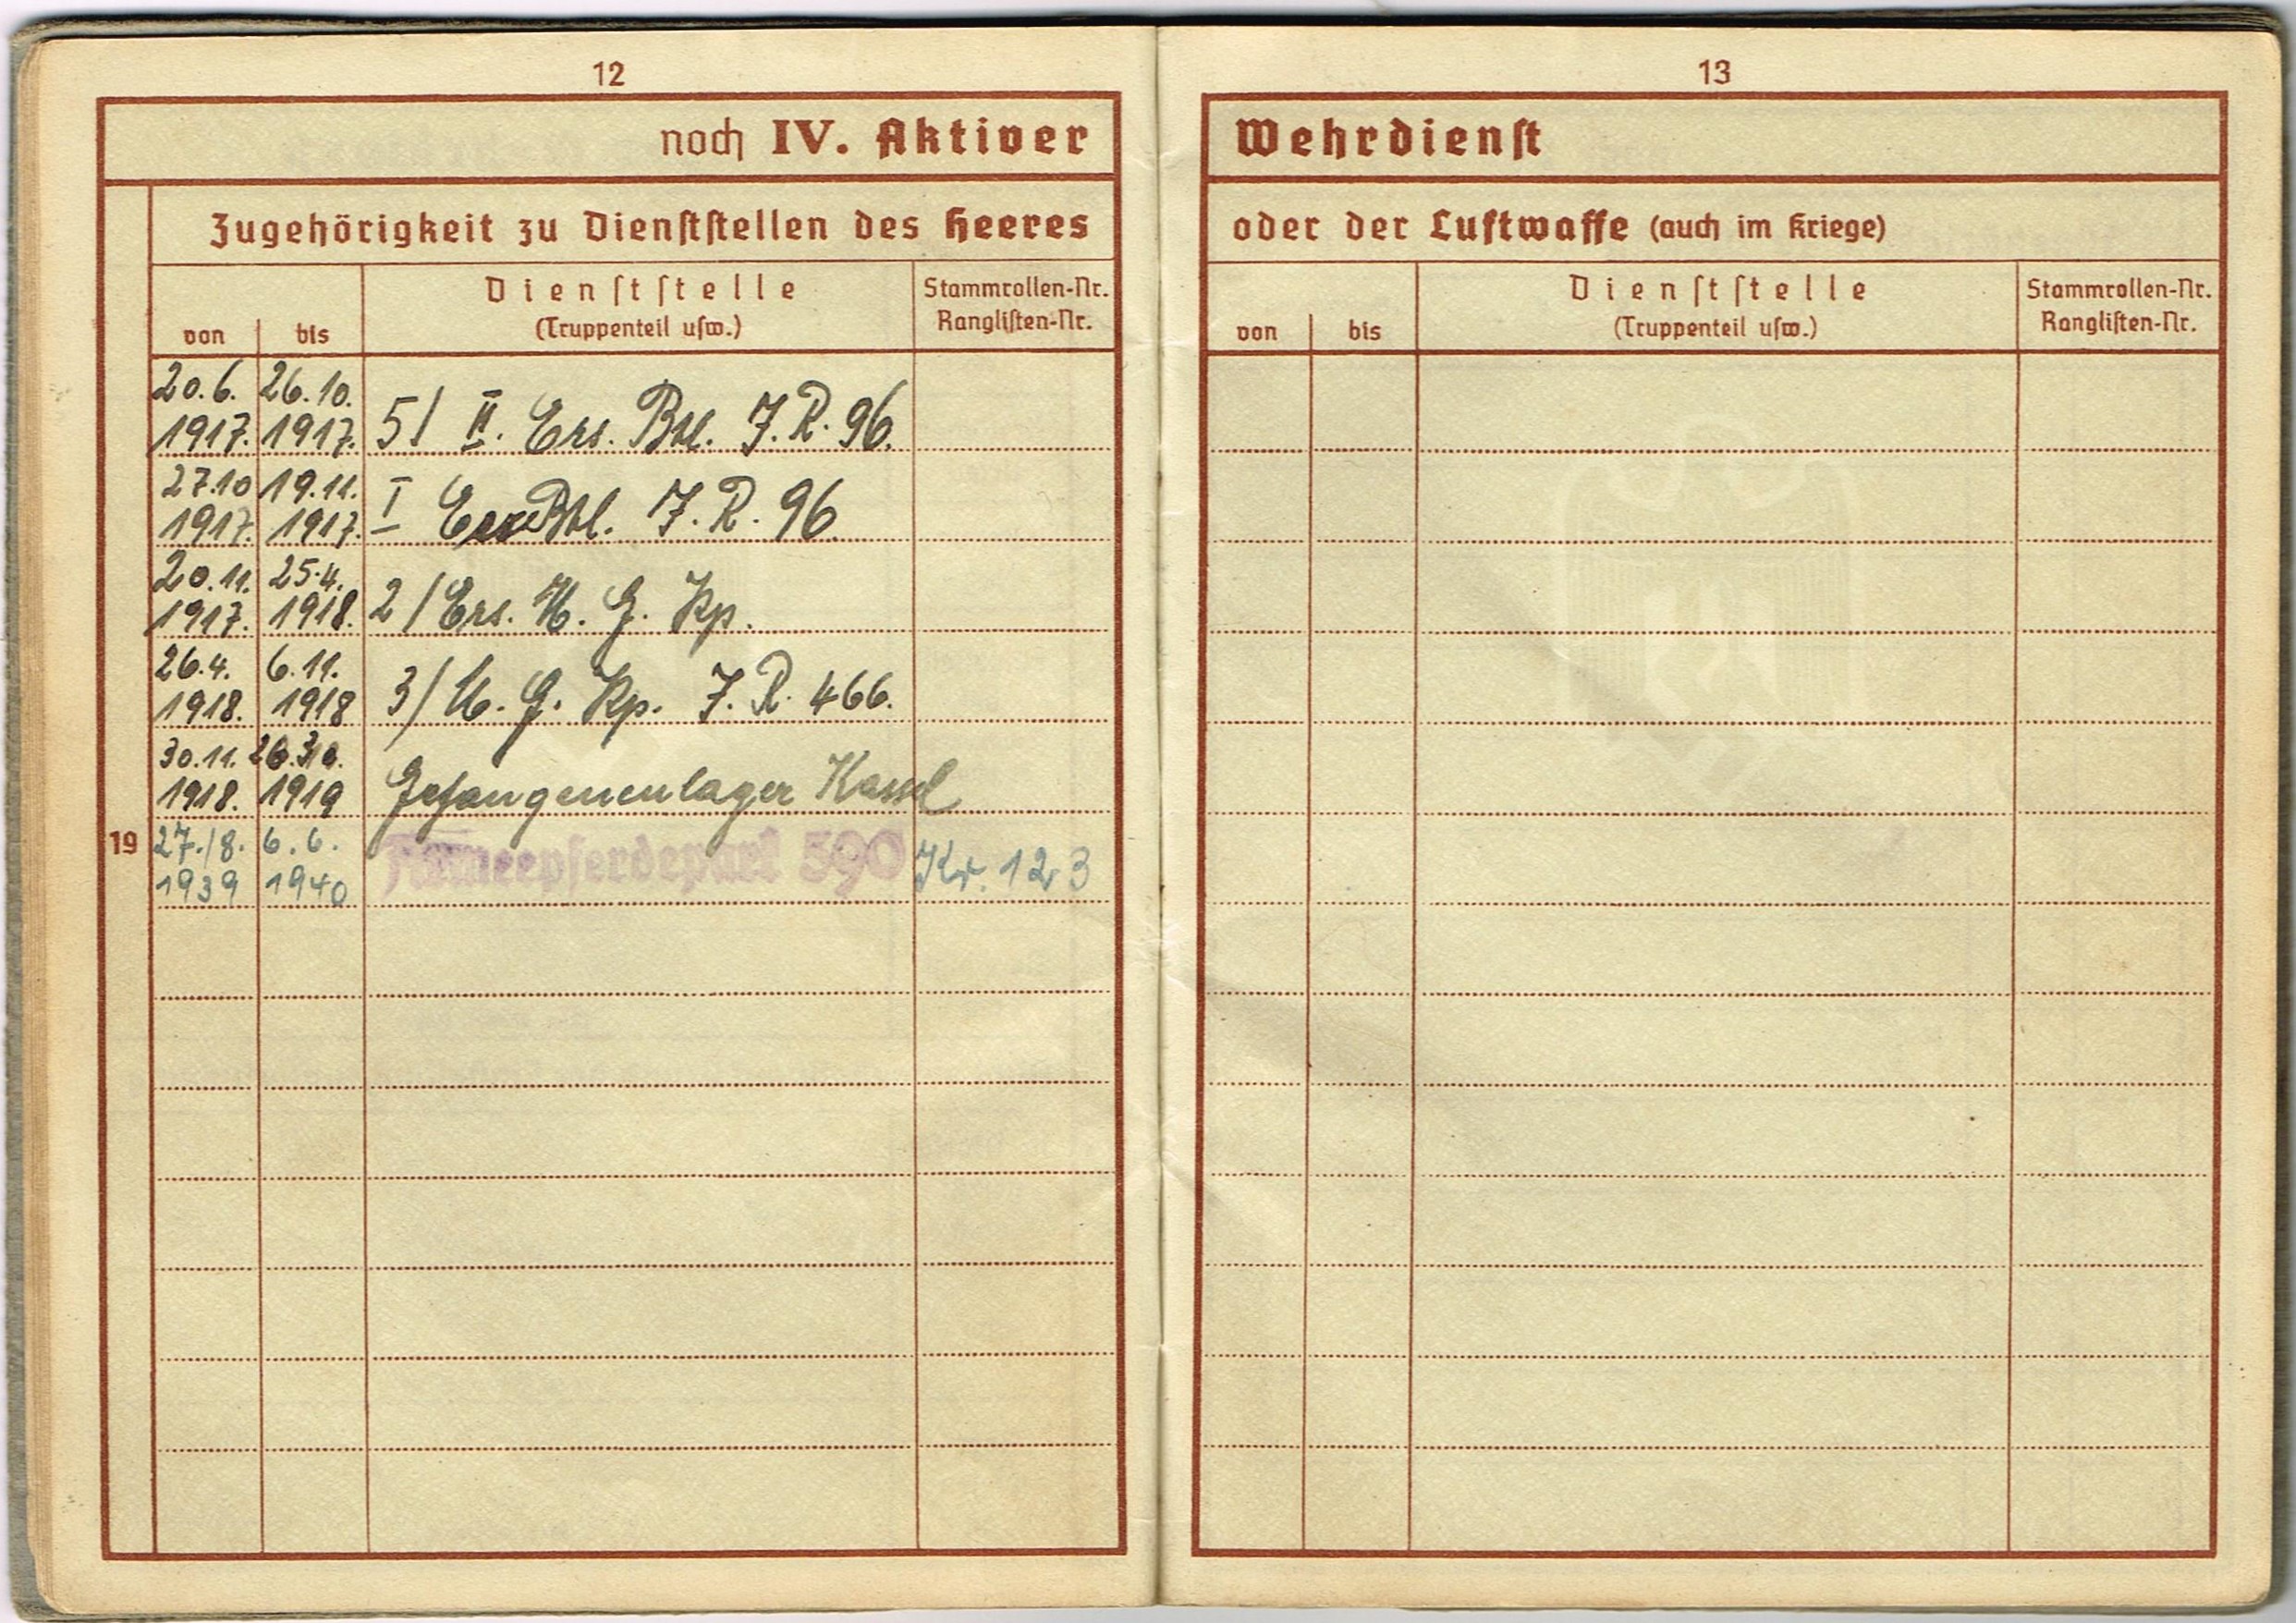 12
noch IV. Aktiver
Zugehörigkeit zu Dienststellen des Heeres
von bis Dienststelle (Truppenteil usw.) Stammrollen-Nr. Ranglisten-Nr.
20.6. 26.10.
1917. 1917. 5/ II. Ers. Btl. J.R. 96.
27.10 19.11.
1917. 1917. I Btl. J.R. 96
20.11. 25.4.
1917. 1918. 2/Ers. M. G. Kp.
26.4. 6.11.
1918. 1918 3/ M. G. Kp. J.R. 466.
30.11.
1918. 1919 Gefangenenlager Kassel
19 27./8. 6.6. Armeepferdepark 590 Kr. 123
1939 1940
13
Wehrdienst
oder der Luftwaffe (auch im Kriege)
von bis Dienststelle (Truppenteil usw.) Stammrollen-Nr. Ranglisten-Nr.